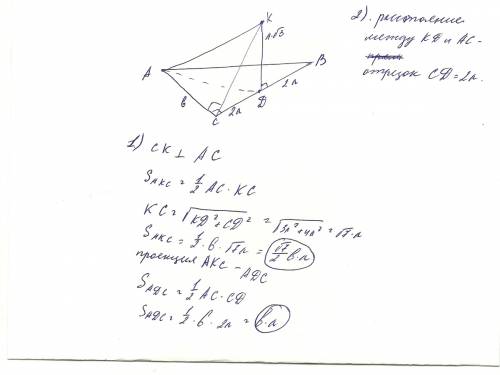 K
n√3
A
B
D
2n
в
2n
C
2). расстояние
между KD и AC -
отрезок CD = 2n.
1) CK ⊥ AC
S AKC = 1/2 AC · KC
KC = √KD² + CD² = √3n² + 4n² = √7 · n
S AKC = 1/2 · в · √7n = √7/2 в · n
проекция AKC - ADC
S ADC = 1/2 AC · CD
S ADC = 1/2 · в · 2n = в · n